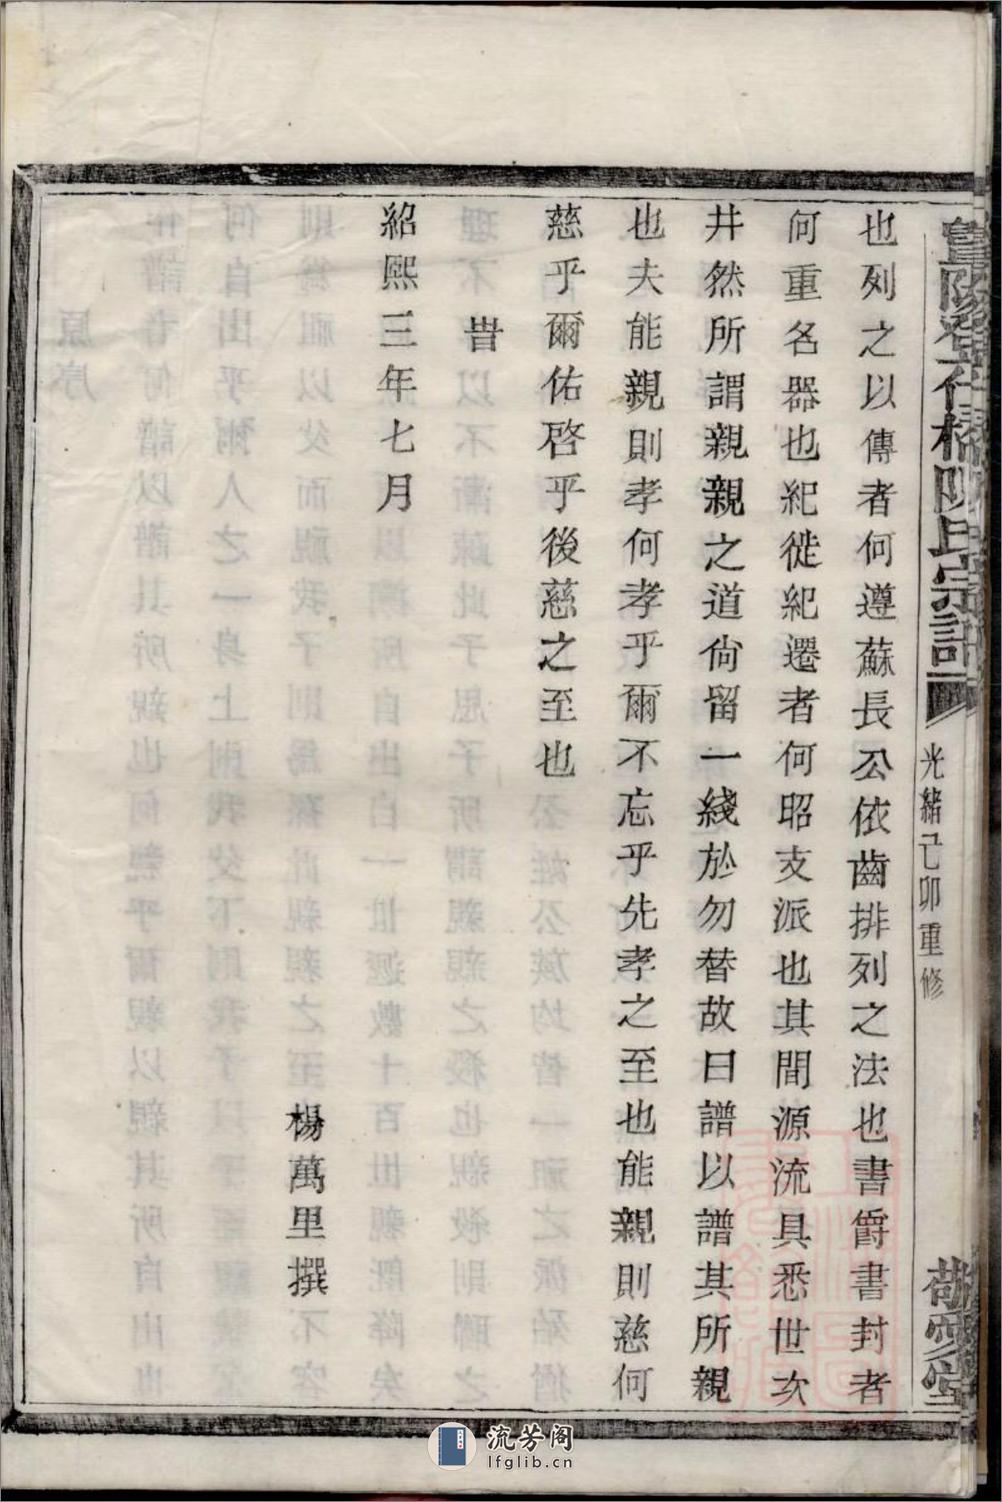 暨陽登仕橋陳氏宗譜
光緒己卯重修
敬愛堂
也列之以傳者何遵蘇長公依齒排列之法也書爵書封者
何重名器也紀徙紀遷者何昭支派也其間源流具悉世次
井然所謂親親之道尙留一綫於勿替故曰譜以譜其所親
也夫能親則孝何孝乎爾不忘乎先孝之至也能親則慈何
慈乎爾佑啓乎後慈之至也
旹
紹熙三年七月
楊萬里撰
流芳阁
lfglib.cn